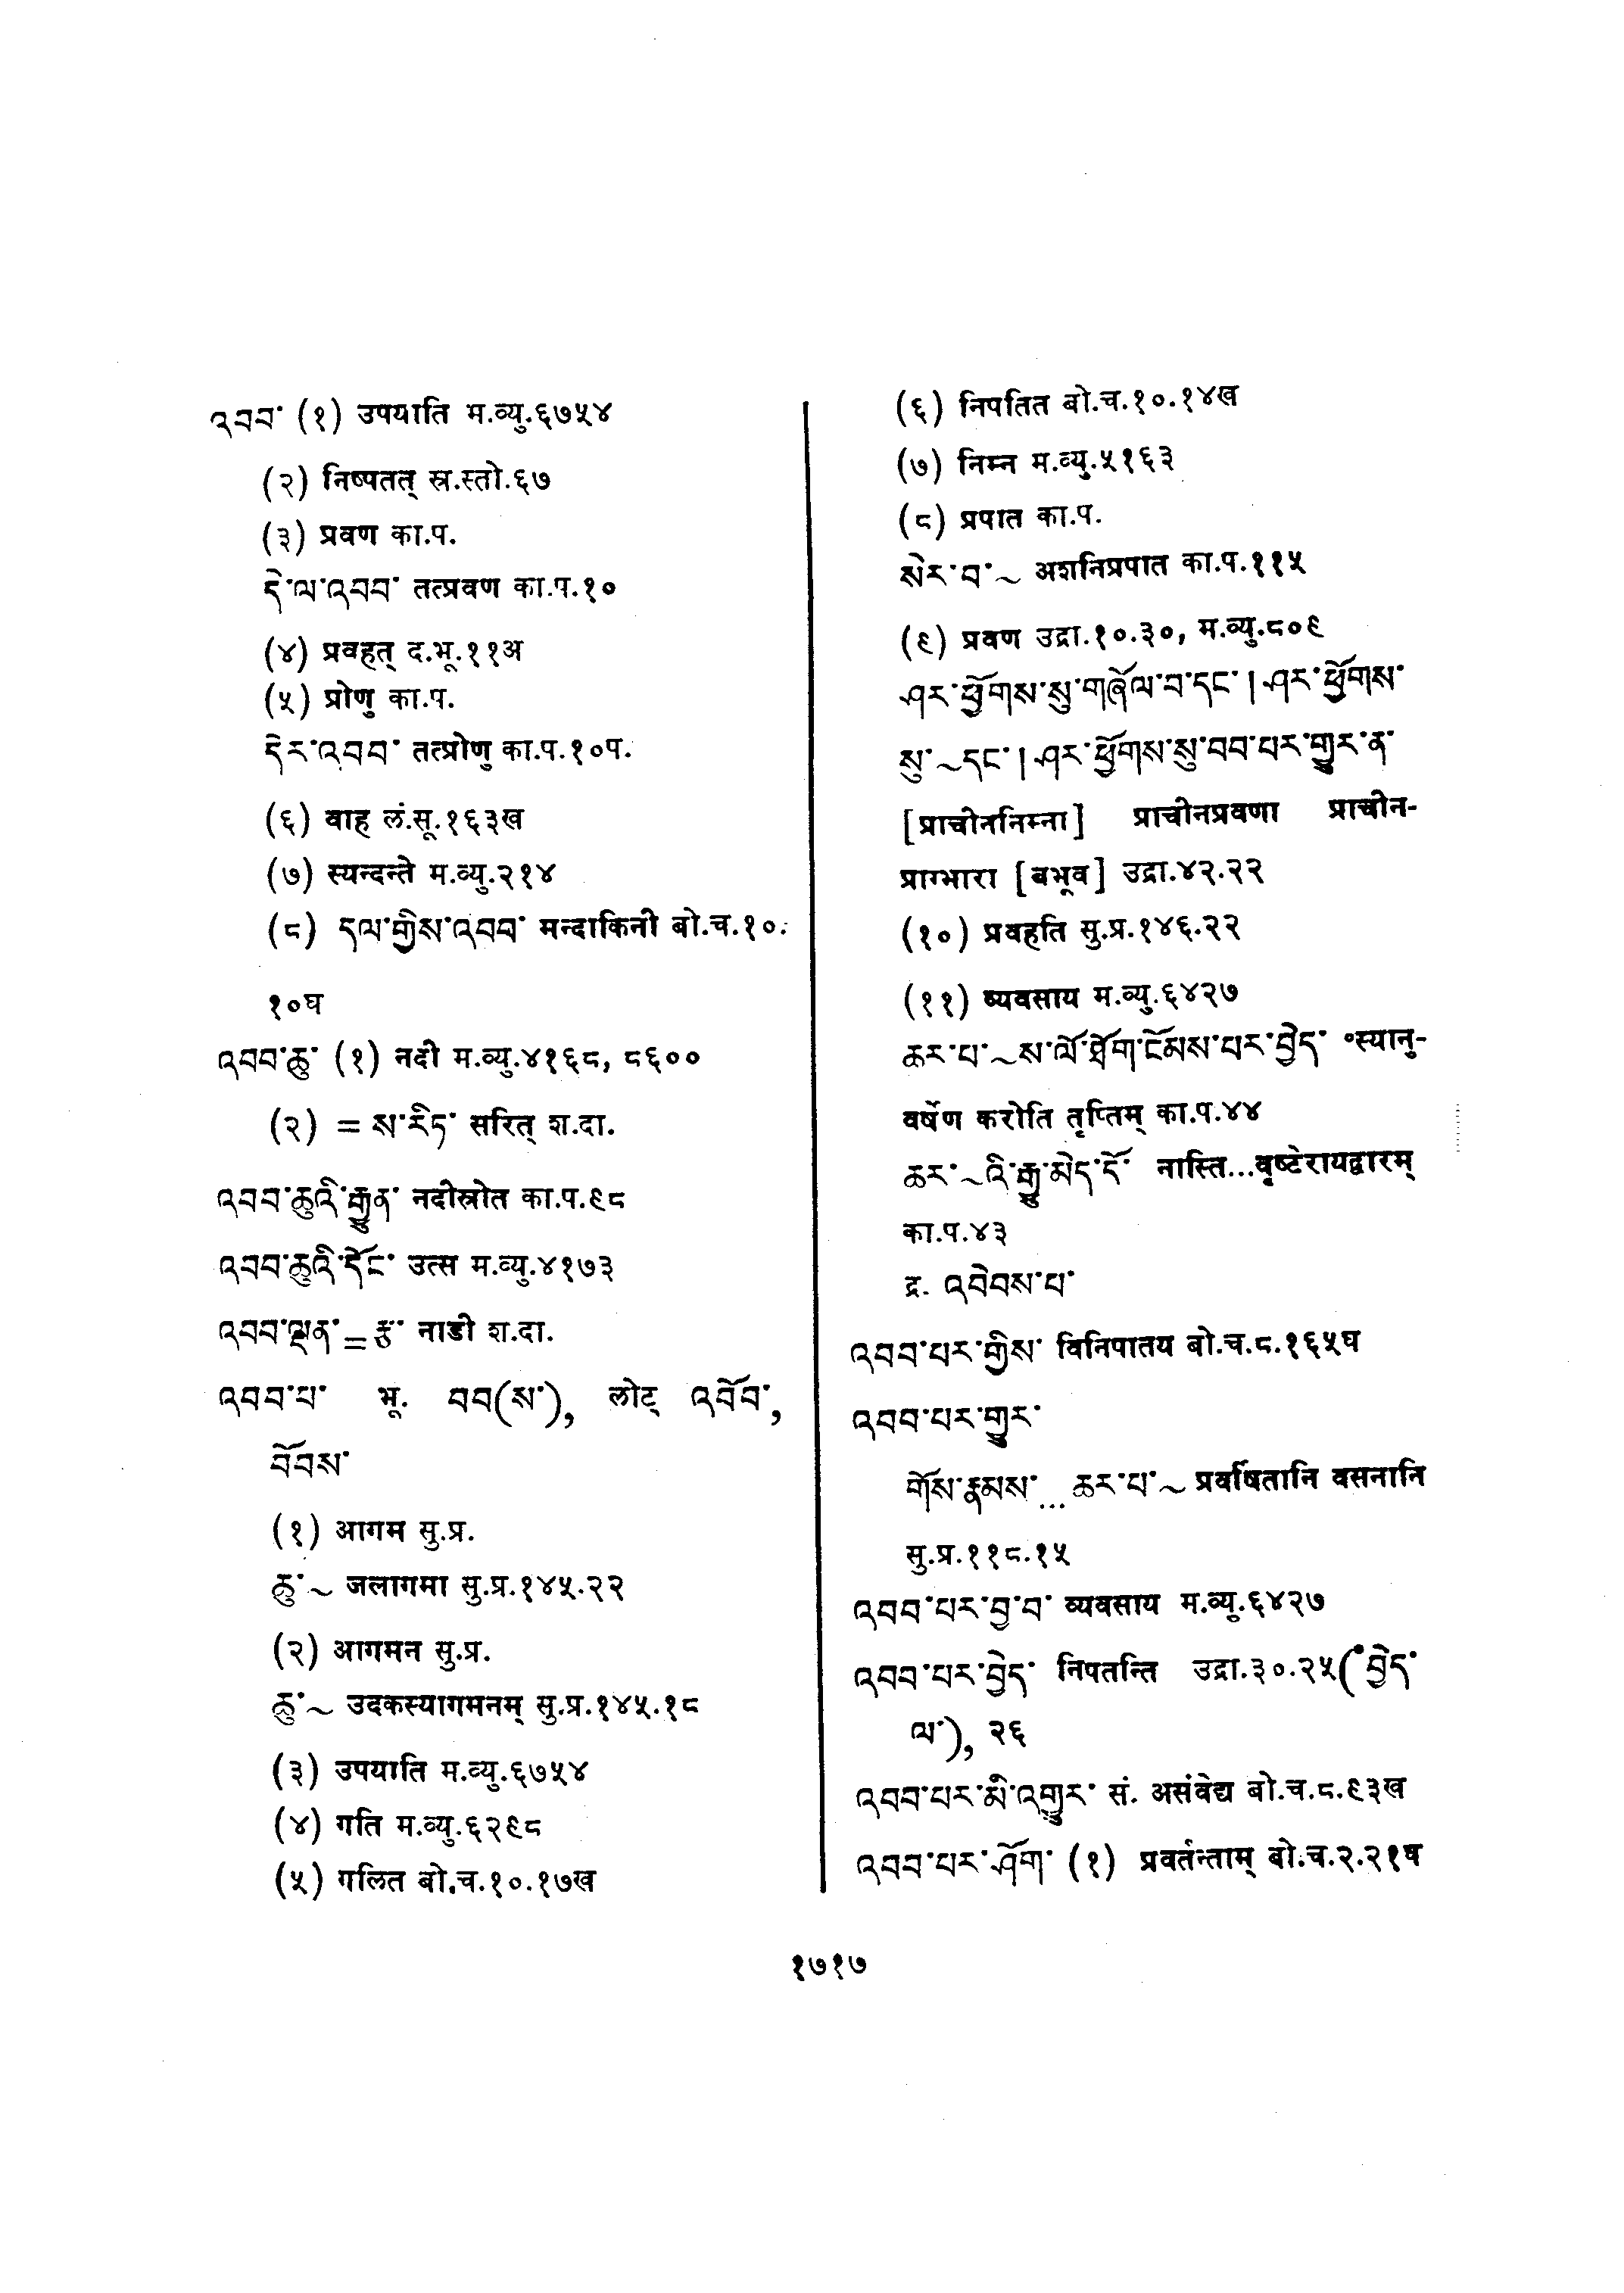 འབབ་ (१) उपयाति म.व्यु.६७५४
(२) निष्पतत् स्र.स्तो.६७
(३) प्रवण का.प.
དེ་ལ་འབབ་ तत्प्रवण का.प.१०
(४) प्रवहत् द.भू.११अ
(५) प्रोणु का.प.
དེར་འབབ་ तत्प्रोणु का.प.१०प.
(६) वाह लं.सू.१६३ख
(७) स्यन्दन्ते म.व्यु.२१४
(८) དལ་གྱིས་འབབ་ मन्दाकिनी बो.च.१०.
१०घ
འབབ་ཆུ་ (१) नदी म.व्यु.४१६८, ८६००
(२) = ས་རིཏ་ सरित् श.दा.
འབབ་ཆུའི་རྒྱུན་ नदीस्रोत का.प.९८
འབབ་ཆུའི་དོང་ उत्स म.व्यु.४१७३
འབབ་ལྡན་ = རྩ་ नाडी श.दा.
འབབ་པ་ भू. བབ(ས་), लोट् འབོབ་,
བོབས་
(१) आगम सु.प्र.
ཆུ་~ जलागमा सु.प्र.१४५.२२
(२) आगमन सु.प्र.
ཆུ་~ उदकस्यागमनम् सु.प्र.१४५.१८
(३) उपयाति म.व्यु.६७५४
(४) गति म.व्यु.६२९८
(५) गलित बो.च.१०.१७ख
(६) निपतित बो.च.१०.१४ख
(७) निम्न म.व्यु.५१६३
(८) प्रपात का.प.
སེར་བ་~ अशनिप्रपात का.प.११५
(९) प्रवण उद्रा.१०.३०, म.व्यु.८०९
ཤར་ཕྱོགས་སུ་གཞོལ་བ་དང་། ཤར་ཕྱོགས་
སུ་~དང་། ཤར་ཕྱོགས་སུ་བབ་པར་གྱུར་ན་
[प्राचीननिम्ना] प्राचीनप्रवणा प्राचीन-
प्राग्भारा [बभूव] उद्रा.४२.२२
(१०) प्रवहति सु.प्र.१४६.२२
(११) व्यवसाय म.व्यु.६४२७
ཆར་པ་~ས་ལོ་ཐོག་ངོམས་པར་བྱེད་ ॰स्यानु-
वर्षेण करोति तृप्तिम् का.प.४४
ཆར་~འི་རྒྱུ་མེད་དོ་ नास्ति...वृष्टेरायद्वारम्
का.प.४३
द्र. འབེབས་པ་
འབབ་པར་གྱིས་ विनिपातय बो.च.८.१६५घ
འབབ་པར་གྱུར་
གོས་རྣམས་...ཆར་པ་~ प्रवर्षितानि वसनानि
सु.प्र.११८.१५
འབབ་པར་བྱ་བ་ व्यवसाय म.व्यु.६४२७
འབབ་པར་བྱེད་ निपतन्ति उद्रा.३०.२५(॰བྱེད་
ལ་), २६
འབབ་པར་མི་འགྱུར་ सं. असंवेद्य बो.च.८.९३ख
འབབ་པར་ཤོག་ (१) प्रवर्तन्ताम् बो.च.२.२१घ
१७१७